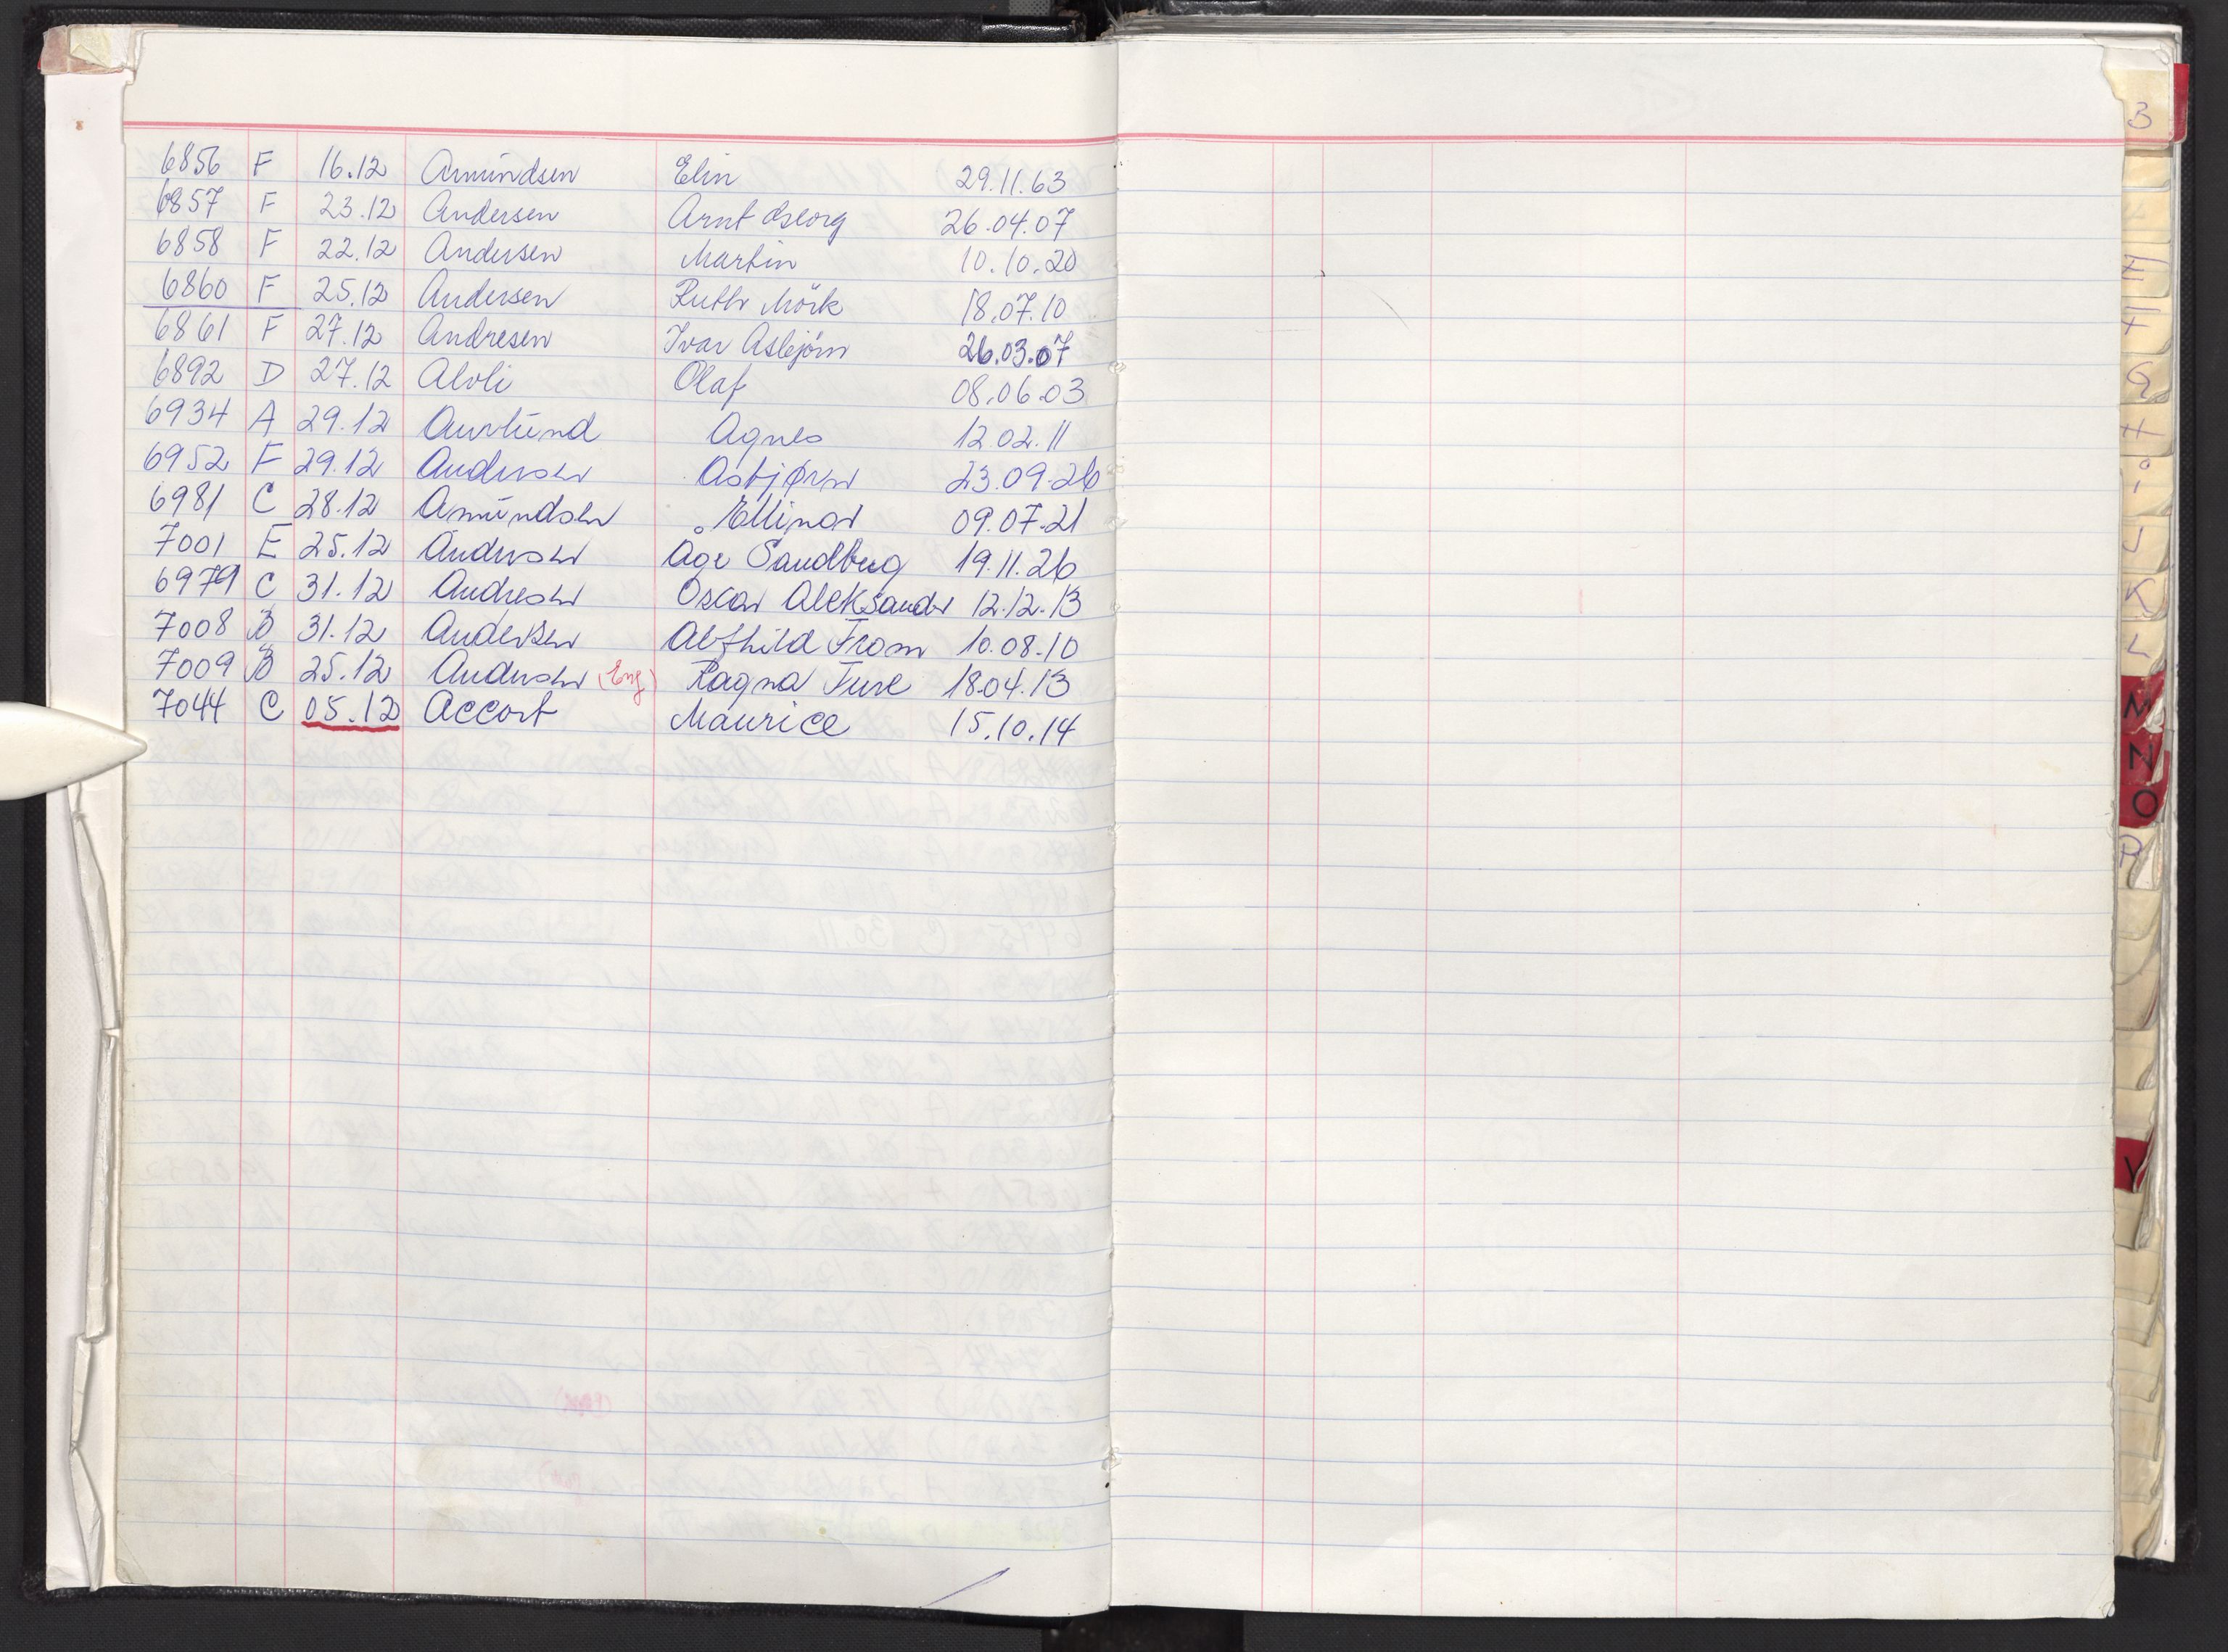 6856 F 16.12 Amundsen Elin 29.11.63
6857 F 23.12 Andersen Arnt Georg 26.04.07
6858 F 22.12 Andersen Martin 10.10.20
6860 F 25.12 Andersen Ruth Mörk 18.07.10
6861 F 27.12 Andresen Ivar Asbjørn 26.03.07
6892 D 27.12 Alvli Olaf 08.06.03
6934 A 29.12 Aurlund Agnes 12.02.11
6952 F 29.12 Andersen Asbjørn 23.09.26
6981 C 28.12 Amundsen Ellinor 09.07.21
7001 E 25.12 Andersen Åge Sandberg 19.11.26
6979 C 31.12 Andresen Oscar Aleksander 12.12.13
7008 B 31.12 Andersen Alfhild From 10.08.10
7009 B 25.12 Andersen (Eng) Ragna Ture 18.04.13
7044 C 05.12 Accort Maurice 15.10.14
B
E
F
G
H
i
J
K
L
M
N
O
P
V